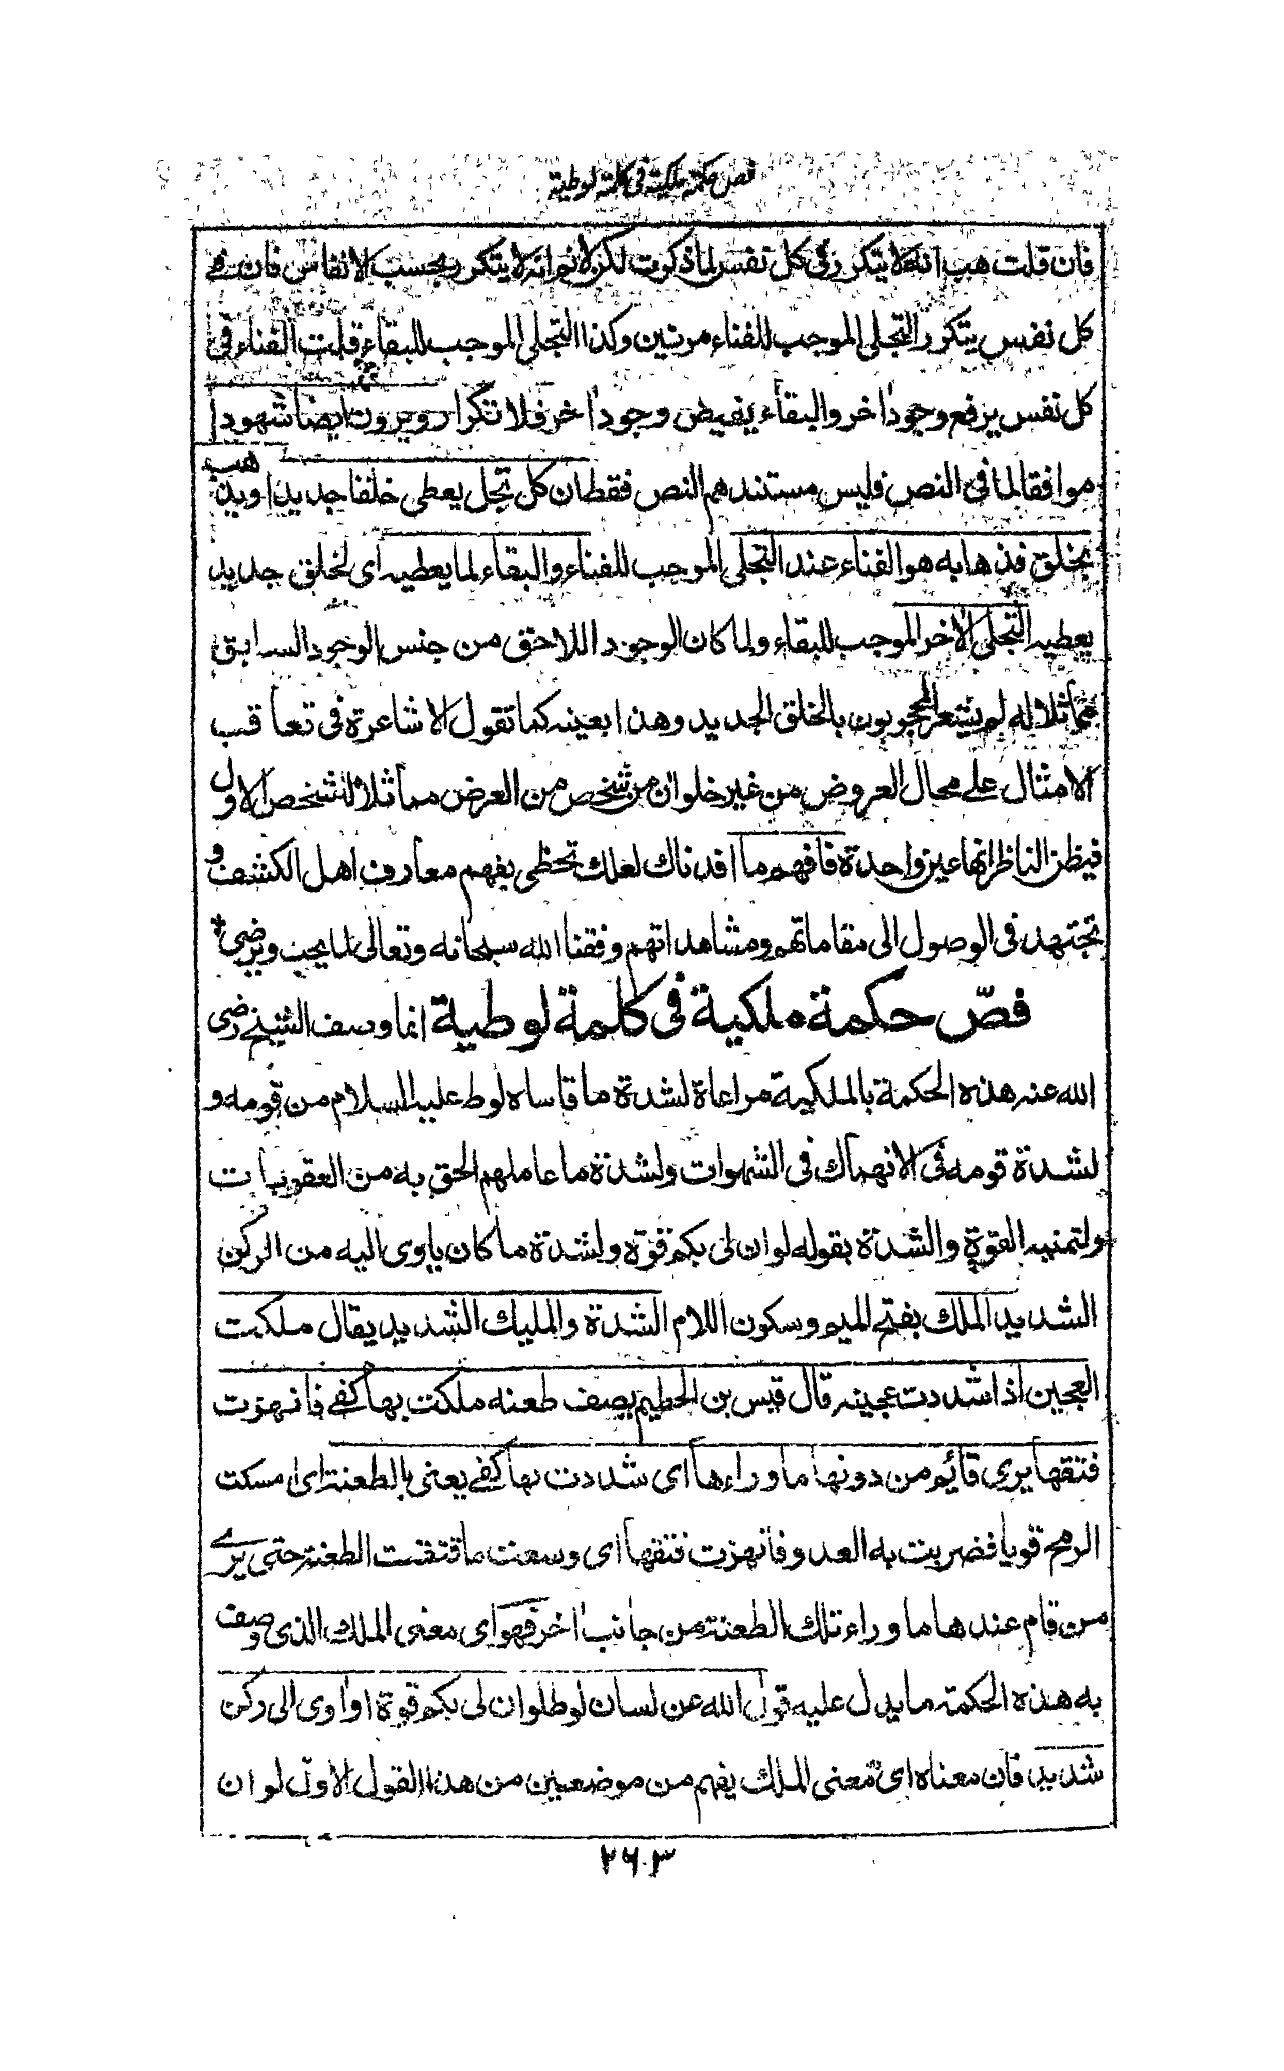 فص حكمة ملكية في كلمة لوطية
فان قلت هب انه لا يتكرر في كل نفس لما ذكرت لكن لا نم انه لا يتكرر بحسب الانفاس فان في
كل نفس يتكرر التجلى الموجب للفناء مرتين وكذا التجلى الموجب للبقاء قلت الفناء في
كل نفس يرفع وجودا اخر والبقاء يفيض وجودا اخر فلا تكرار ويرون ايضا شهودا
موافقا لما في النص فليس مستندهم النص فقط ان كل تجل يعطى خلقا جديدا ويذهب
بخلق فذهابه هو الفناء عند التجلى الموجب للفناء والبقاء لما يعطيه اى لخلق جديد
يعطيه التجلى الاخر الموجب للبقاء ولما كان الوجود اللاحق من جنس الوجود السابق
مماثلا له لم يشعر المحجوبون بالخلق الجديد وهذا بعينه كما تقول الاشاعرة في تعاقب
الامثال على محال العروض من غير خلو ان من شخص من العرض مماثلا لشخص الاول
فيظن الناظر انها عين واحدة فافهم ما افدناك لعلك تحظى بفهم معارف اهل الكشف و
تجتهد في الوصول الى مقاماتهم ومشاهداتهم وفقنا الله سبحانه وتعالى لما يحب ويرضى *
فصّ حكمة ملكية في كلمة لوطية انما وصف الشيخ رضى
الله عنه هذه الحكمة بالملكية مراعاة لشدة ما قاساه لوط عليه السلام من قومه و
لشدة قومه في الانهماك في الشهوات ولشدة ما عاملهم الحق به من العقوبات
ولتمنيه القوة والشدة بقوله لو ان لى بكم قوة ولشدة ما كان ياوى اليه من الركن
الشديد الملك بفتح الميم وسكون اللام الشدة والمليك الشديد يقال ملكت
العجين اذا شددت عجينه قال قيس بن الحطيم يصف طعنه ملكت بها كفى فانهزت
فتقها يرى قائم من دونها ما وراءها اى شددت بها كفى يعنى بالطعنة اى امسكت
الرمح قويا فضربت به العدو فانهزت فتقها اى وسعت ما فتقت الطعنة حتى يرى
من قام عندها ما وراء تلك الطعنة من جانب اخر فهو اى معنى الملك الذى وصف
به هذه الحكمة ما يدل عليه قول الله عن لسان لوط لو ان لى بكم قوة او اوى الى ركن
شديد فان معناه اى معنى الملك يفهم من موضعين من هذا القول الاول لو ان
٢٦٠٣